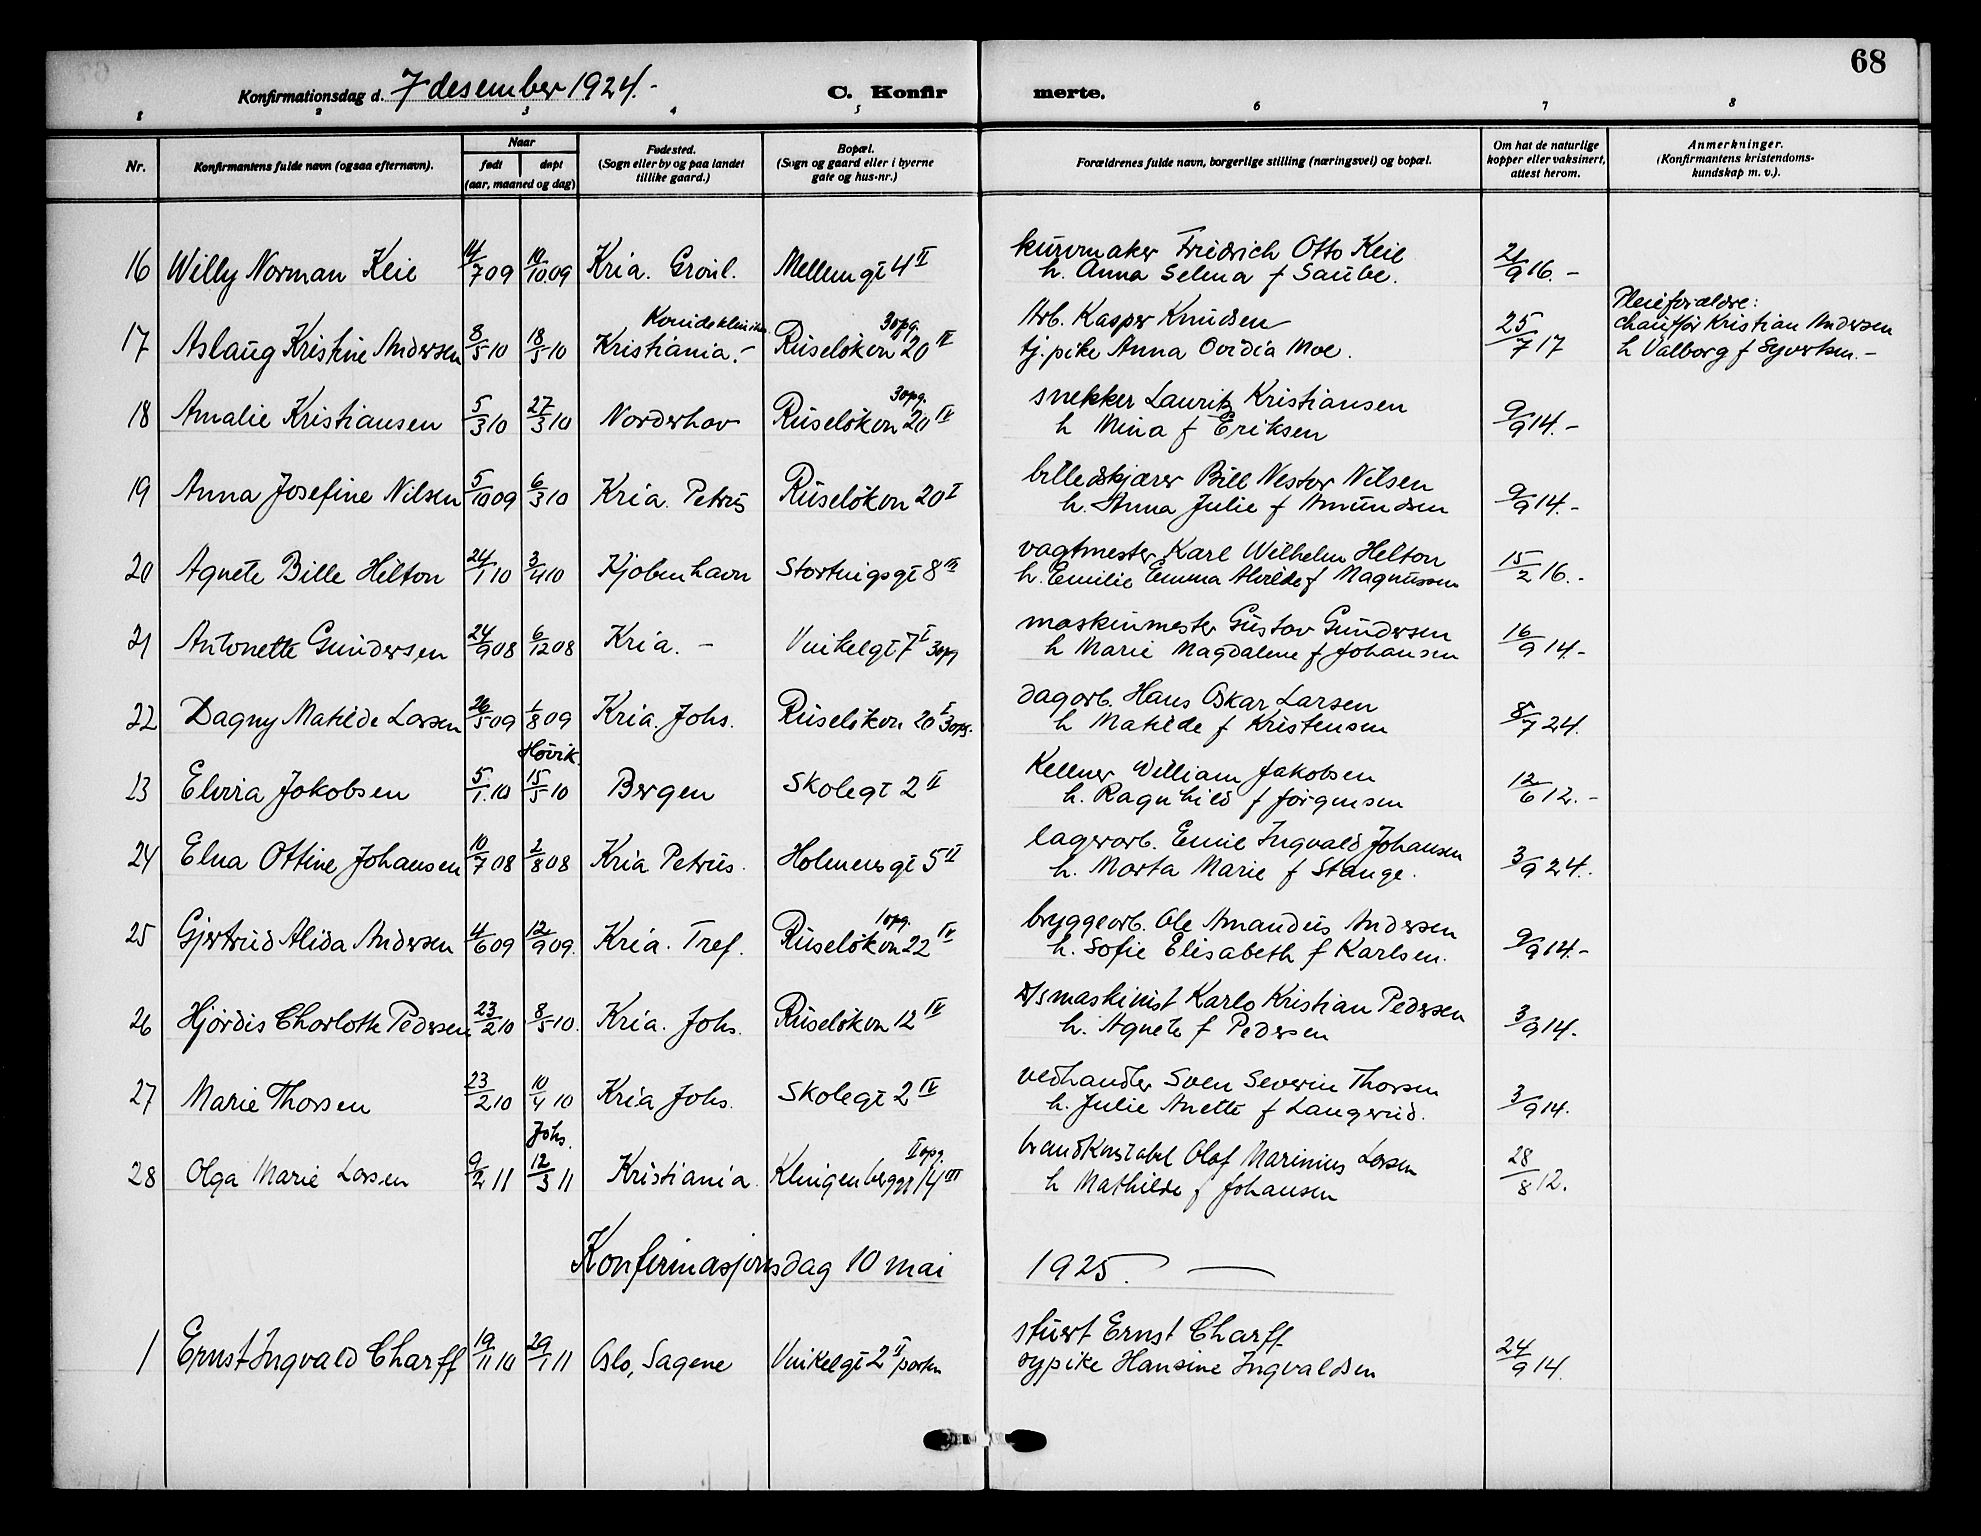 68
Konfirmationsdag d. 7 desember 1924.-
C. Konfir merte.
1 2 3 4 5 6 7 8
Nr.
Konfirmantens fulde navn (ogsaa efternavn).
Naar
født døpt
(aar, maaned og dag)
Fødested.
(Sogn eller by og paa landet
tillike gaard.)
Bopæl.
(Sogn og gaard eller i byerne
gate og hus-nr.)
Forældrenes fulde navn, borgerlige stilling (næringsvei) og bopæl.
Om hat de naturlige
kopper eller vaksinert,
attest herom.
Anmerkninger.
(Konfirmantens kristendoms-
kundskap m. v.).
16 Willy Norman Keil 14/7 09 10/10 09 Kria. Grønl. Mellemgt 4 II
kurvmaker Friedrich Otto Keil
h. Anna Selma f Saube.
21/9 16.-
17 Aslaug Kristine Andersen 8/5 10 18/5 10 Kristiania.- Ruseløkvn 20 IV
3 opg.
Arb. Kasper Knudsen
tj.pike Anna Ovidia Moe.
25/7 17
Pleieforældre:
chauffør Kristian Andersen
h Valborg f Syvertsen.-
18 Amalie Kristiansen 5/3 10 27/3 10 Norderhov Ruseløkvn 20 IV
3 opg.
snekker Lauritz Kristiansen
h Mina f Eriksen
9/9 14.-
19 Anna Josefine Nilsen 5/10 09 6/3 10 Kria. Petrus Ruseløkvn 20 I
billedskjærer Bill Nestor Nilsen
h. Anna Julie f Amundsen
9/9 14.-
20 Agnete Bille Helton 24/1 10 3/4 10 Kjøbenhavn Stortingsgt 8 IV
vagtmester Karl Wilhelm Helton
h. Emilie Emma Alvilde f Magnussen
15/2 16.-
21 Antonette Gundersen 24/9 08 6/12 08 Kria. - Vinkelgt 7 I 3 opg
maskinmester Gustav Gundersen
h Marie Magdalene f Johansen
16/9 14.-
22 Dagny Matilde Larsen 26/5 09 1/8 09 Kria. Johs. Ruseløkvn 20 I 3 opg.
dagarb. Hans Oskar Larsen
h Matilde f Kristensen
8/7 24.
23 Elvira Jakobsen 5/1. 10 Høvik. 15/5 10 Bergen Skolegt 2 II
Kellner William Jakobsen
h. Ragnhild f Jørgensen
12/6 12.-
24 Elna Ottine Johansen 10/7 08 2/8 08 Kria Petrus. Holmensgt 5 II
lagerarb. Emil Ingvald Johansen
h. Marta Marie f Stange.
3/9 24.
25 Gjertrud Alida Andersen 4/6 09 12/9 09. Kria. Tref. Ruseløkvn 22 IV
1 opg.
bryggearb. Ole Amandus Andersen
h. Sofie Elisabeth f Karlsen.
9/9 14.-
26 Hjørdis Charlotte Pedersen 23/2 10 8/5 10. Kria. Johs. Ruseløkvn 12 IV
maskinist Karlo Kristian Pedersen
h. Agnete f Pedersen
3/9 14.
27 Marie Thorsen 23/2 10 10/4 10 Kria Johs. Skolegt 2 IV
vedhandler Sven Severin Thorsen
h. Julie Anette f Langerud.
3/9 14.
28 Olga Marie Larsen 9/2 11 Johs. 12/3 11 Kristiania. Klingenberggt 14 III
II opg.
brandkonstabel Olaf Marinius Larsen
h Mathilde f Johansen
28/8 12.
Konfirmasjonsdag 10 mai 1925.
1 Ernst Ingvald Charff 19/11 10 29/1 11 Oslo, Sagene Vinkelgt 2 II porten
stuert Ernst Charff
sypike Hansine Ingvaldsen
24/9 14.